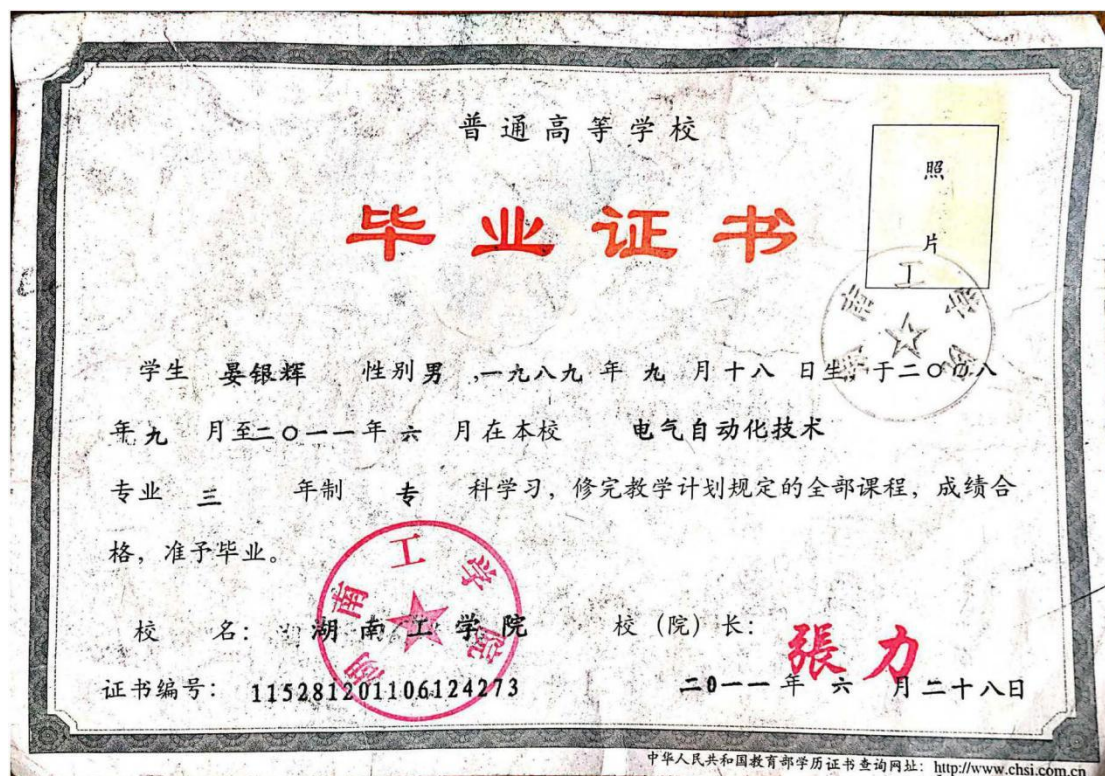 普通高等学校
照
片
毕业证书
湖南工学院
学生 晏银辉 性别 男 ,一九八九 年 九 月 十八 日生, 于二〇〇八
年 九 月至二〇一一年 六 月在本校 电气自动化技术
专业 三 年制 专 科学习, 修完教学计划规定的全部课程, 成绩合
格, 准予毕业。
湖南工学院
校 名: 湖南工学院 校 (院) 长: 張力
证书编号: 115281201106124273 二0一一 年 六 月二十八日
中华人民共和国教育部学历证书查询网址: http://www.chsi.com.cn